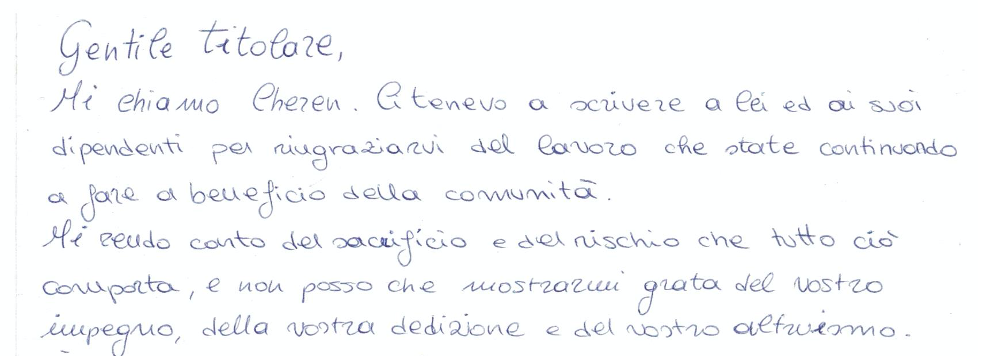 Gentile titolare,
Mi chiamo Cheren. Ci tenevo a scrivere a lei ed ai suoi
dipendenti per ringraziarvi del lavoro che state continuando
a fare a beneficio della comunità.
Mi rendo conto del sacrificio e del rischio che tutto ciò
comporta, e non posso che mostrarmi grata del vostro
impegno, della vostra dedizione e del vostro altruismo.